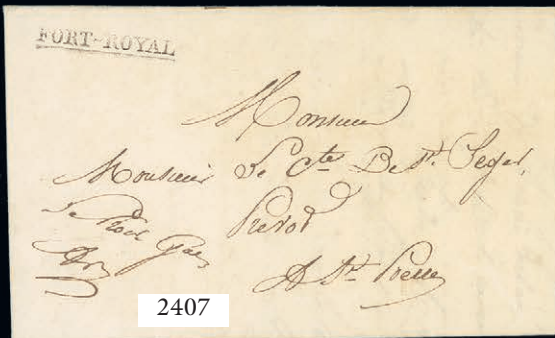 FORT-ROYAL
Monsieur
Monsieur Le Cte De St. Leger,
Prevot
Le Proc Gen
A St. Pierre
2407